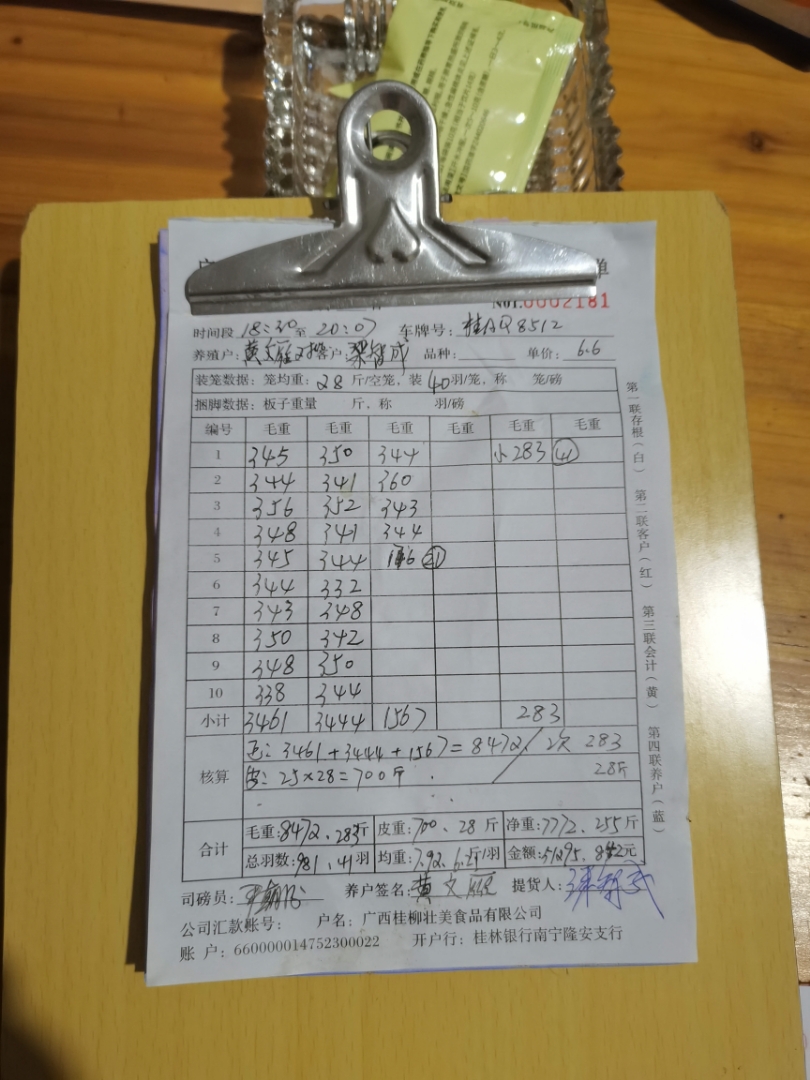 单
NO1.0002181
时间段 18:30 至 20:07 车牌号: 桂AQ8512
养殖户: 黄文 客户: 梁智成 品种: 单价: 6.6
装笼数据: 笼均重: 28 斤/空笼, 装 40 羽/笼, 称 笼/磅
捆脚数据: 板子重量 斤, 称 羽/磅
编号 毛重 毛重 毛重 毛重 毛重 毛重
1 345 350 344 小283 41
2 344 341 360
3 356 352 343
4 348 341 344
5 345 344 21
6 344 332
7 343 348
8 350 342
9 348 350
10 338 344
小计 3461 3444 1567 283
核算 毛: 3461+3444+1567=8472 次 283
皮: 25×28=700斤 28斤
合计 毛重: 8472、283斤 皮重: 700、28斤 净重: 7772、255斤
总羽数: 981、41羽 均重: 7.92、6.2斤/羽 金额: 51295、842元
司磅员: 养户签名: 黄文 提货人:
公司汇款账号: 户名: 广西桂柳壮美食品有限公司
账 户: 660000014752300022 开户行: 桂林银行南宁隆安支行
第一联存根(白) 第二联客户(红) 第三联会计(黄) 第四联养户(蓝)